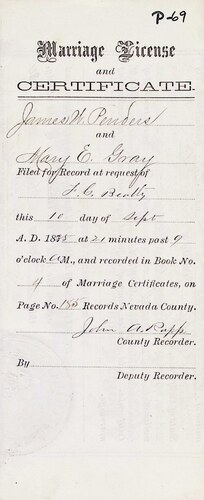 P-69
Marriage License
and
CERTIFICATE.
James W. Penders
and
Mary E. Gray
Filed for Record at request of
F. C. Beatty
this 10 day of Sept
A. D. 1875 at 21 minutes past 9
o'clock A M., and recorded in Book No.
4 of Marriage Certificates, on
Page No. 185 Records Nevada County.
John A. Rapp
County Recorder.
By
Deputy Recorder.